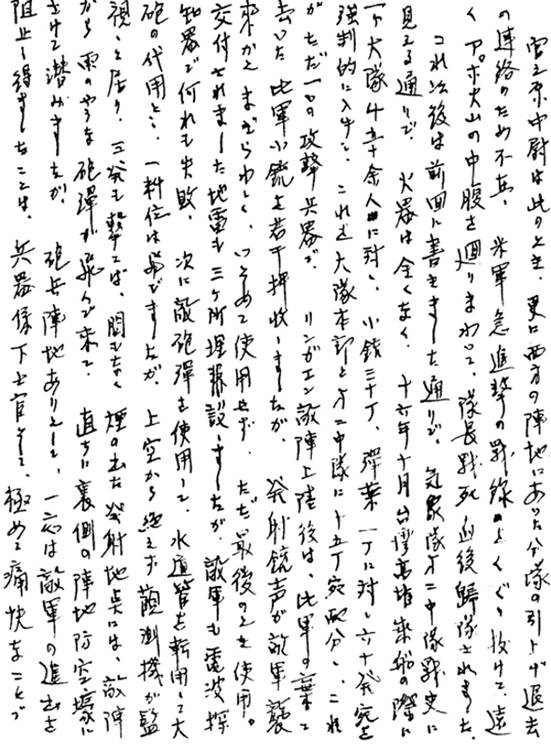 宮之原中尉は此のとき、更に西方の陣地にあった分隊の引上げ退去
の連絡のため不在、米軍急進撃の戦線をよくぐり抜けて、遠
くアポ火山の中腹を廻りまわって、隊長戦死直後帰隊されました。
これ以後は前回に書きました通りで、気象隊第二中隊戦史に
見える通りで、火器は全くなく、十九年十月台湾高雄乗船の際に
一ケ大隊八百五十余人に対し、小銃三十丁、弾薬一丁に対し六十発宛を
強制的に入手し、これを大隊本部と第二中隊に十五丁宛配分し、これ
がただ一つの攻撃兵器が、リンガエン敵陣上陸後は、比軍の棄て
去いた比軍小銃を若干押収しましたが、発射銃声が敵軍襲
来かとまぎらわしく、いさめて使用せず、ただ最後のとき使用。
交付されました地雷も三ケ所埋設しましたが、敵軍も電波探
知器で何れも失敗、次に敵砲弾を使用して、水道管を転用して大
砲の代用とし、一料位は飛びましたが、上空から絶えず観測機が監
視して居り、三発も撃てば、間もなく煙の出た発射地点には、敵陣
から雨のような砲弾が飛んで来て、直ちに裏側の陣地防空壕に
さけて潜みましたが、砲兵陣地ありとして、一応は敵軍の進出を
阻止し得ましたことは、兵器係下士官として、極めて痛快なことで